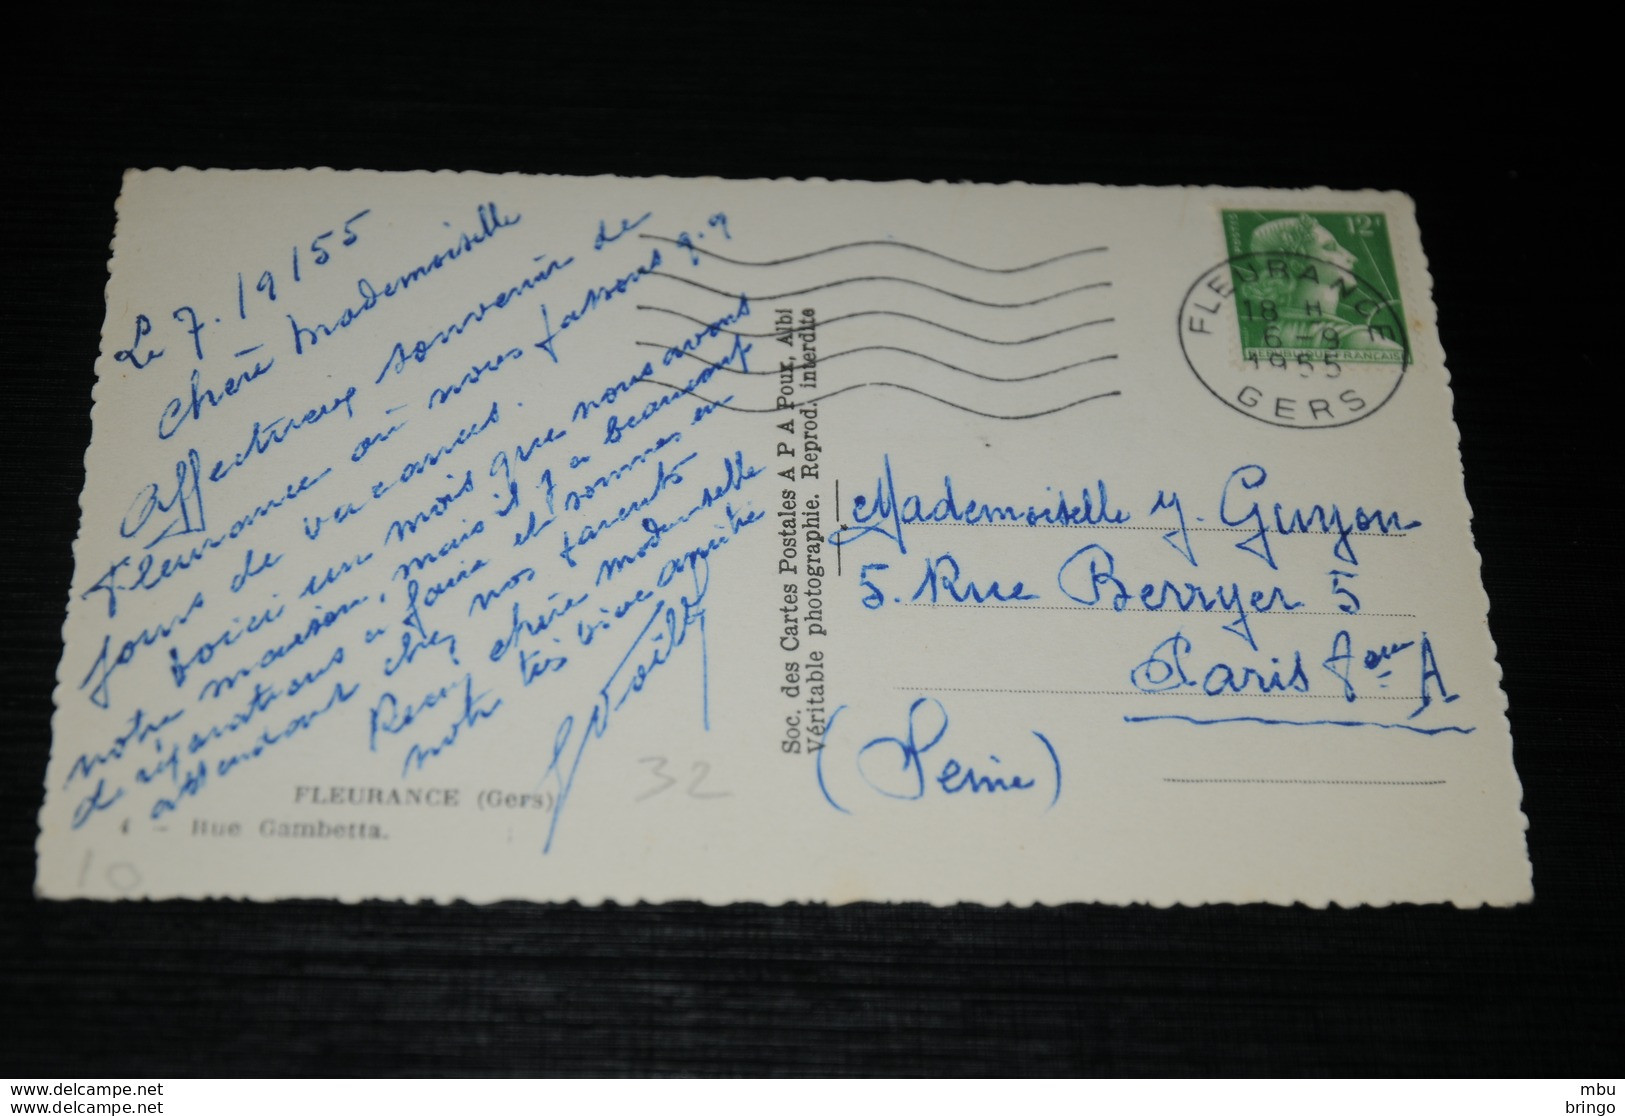 Le 7.19155
Chère Mademoiselle
Affectueux souvenir de
Fleurance où nous passons q.q
jours de vacances.
Voici un mois que nous avons
notre maison, mais il y a beaucoup
de réparations à faire et sommes en
attendant chez nos parents
Recevez chère mademoiselle
notre très vive amitié
FLEURANCE (Gers)
4 - Rue Gambetta.
10
32
Soc. des Cartes Postales A P A Poux, Albi
Véritable photographie. Reprod. interdite
POSTES
12F
REPUBLIQUE FRANÇAISE
FLEURANCE
18 H
6 - 9
1955
GERS
Mademoiselle Y. Guyon
5. Rue Berryer 5
Paris 8ème A
(Seine)
www.delcampe.net
www.delcampe.net
mbu
bringo